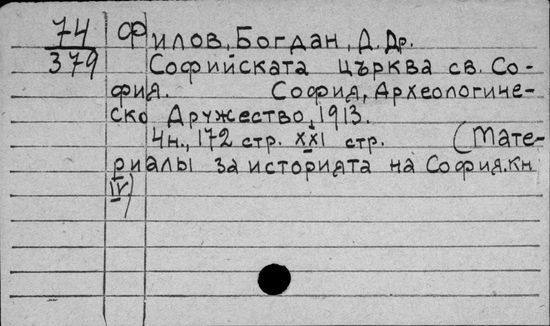 74 Филов, Богдан, Д. Др.
379 Софийската църква св. Со-
фия. София, Археологиче-
ско Дружество, 1913.
4н., 172 стр. XXI стр. (Мате-
риалы за историята на София. кн
IV)